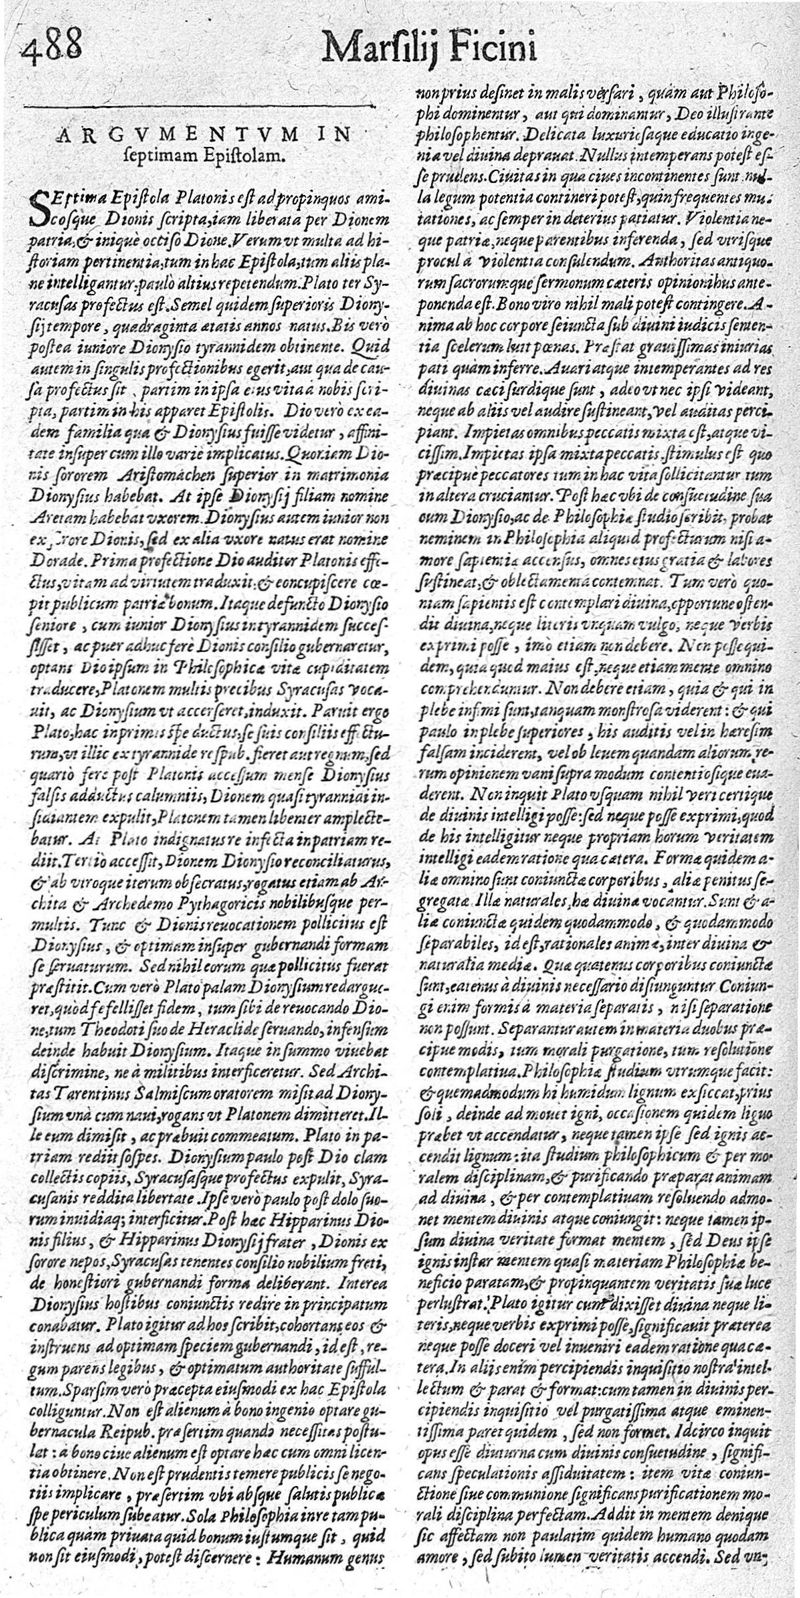 488
Marsilij Ficini
ARGVMENTVM IN
septimam Epistolam.
SEptima Epistola Platonis est ad propinquos ami-
cosque Dionis scripta, iam liberata per Dionem
patria, & iniquè occiso Dione. Verum vt multa ad hi-
storiam pertinentia, tum in hac Epistola, tum aliis pla-
ne intelligantur, paulò altius repetendum. Plato ter Sy-
racusas profectus est. Semel quidem superioris Diony-
sij tempore, quadraginta ætatis annos natus. Bis verò
postea iuniore Dionysio tyrannidem obtinente. Quid
autem in singulis profectionibus egerit, aut qua de cau-
sa profectus sit, partim in ipsa eius vita à nobis scri-
pta, partim in his apparet Epistolis. Dio verò ex ea-
dem familia qua & Dionysius fuisse videtur, affini-
tate insuper cum illo variè implicatus. Quoniam Dio-
nis sororem Aristomachen superior in matrimonia
Dionysius habebat. At ipse Dionysij filiam nomine
Aretam habebat vxorem. Dionysius autem iunior non
ex sorore Dionis, sed ex alia vxore natus erat nomine
Dorade. Prima profectione Dio auditor Platonis effe-
ctus, vitam ad virtutem traduxit, & concupiscere cœ-
pit publicum patriæ bonum. Itaque defuncto Dionysio
seniore, cum iunior Dionysius in tyrannidem succes-
sisset, ac puer adhuc ferè Dionis consilio gubernaretur,
optans Dio ipsum in Philosophicæ vitæ cupiditatem
traducere, Platonem multis precibus Syracusas voca-
uit, ac Dionysium vt accerseret, induxit. Paruit ergo
Plato, hac inprimis spe ductus, se suis consiliis effectu-
rum, vt illic ex tyrannide respub. fieret aut regnum, sed
quartò ferè post Platonis accessum mense Dionysius
falsis adductus calumniis, Dionem quasi tyrannidi in-
sidiantem expulit, Platonem tamen libenter amplecte-
batur. At Plato indignatus re infecta in patriam re-
diit. Tertiò accessit, Dionem Dionysio reconciliaturus,
& ab vtroque iterum obsecratus, rogatus etiam ab Ar-
chita & Archedemo Pythagoricis nobilibusque per-
multis. Tunc & Dionis reuocationem pollicitus est
Dionysius, & optimam insuper gubernandi formam
se seruaturum. Sed nihil eorum quæ pollicitus fuerat
præstitit. Cum verò Plato palam Dionysium redargue-
ret, quòd fefellisset fidem, tum sibi de reuocando Dio-
ne, tum Theodoti suo de Heraclide seruando, infensum
deinde habuit Dionysium. Itaque in summo viuebat
discrimine, ne à militibus interficeretur. Sed Archi-
tas Tarentinus Salmiscum oratorem misit ad Diony-
sium vnà cum naui, rogans vt Platonem dimitteret. Il-
le eum dimisit, ac præbuit commeatum. Plato in pa-
triam rediit sospes. Dionysium paulo post Dio clam
collectis copiis, Syracusasque profectus expulit, Syra-
cusanis reddita libertate. Ipse verò paulo post dolo suo-
rum inuidiaq; interficitur. Post hæc Hipparinus Dio-
nis filius, & Hipparinus Dionysij frater, Dionis ex
sorore nepos, Syracusas tenentes consilio nobilium freti,
de honestiori gubernandi forma deliberant. Interea
Dionysius hostibus coniunctis redire in principatum
conabatur. Plato igitur ad hos scribit, cohortans eos &
instruens ad optimam speciem gubernandi, id est, re-
gum parens legibus, & optimatum authoritate sufful-
tum. Sparsim verò præcepta eiusmodi ex hac Epistola
colliguntur. Non est alienum à bono ingenio optare gu-
bernacula Reipub. præsertim quando necessitas postu-
lat: à bono ciue alienum est optare hæc cum omni licen-
tia obtinere. Non est prudentis temere publicis se nego-
tiis implicare, præsertim vbi absque salutis publicæ
spe periculum subeatur. Sola Philosophia in re tam pu-
blica quàm priuata quid bonum iustumque sit, quid
non sit eiusmodi, potest discernere: Humanum genus
non prius desinet in malis versari, quàm aut Philoso-
phi dominentur, aut qui dominantur, Deo illustrante
philosophentur. Delicata luxuriosaque educatio inge-
nia vel diuina deprauat. Nullus intemperans potest es-
se prudens. Ciuitas in qua ciues incontinentes sunt, nul-
la legum potentia contineri potest, quin frequentes mu-
tationes, ac semper in deterius patiatur. Violentia ne-
que patriæ, neque parentibus inferenda, sed vtrisque
procul à violentia consulendum. Authoritas antiquo-
rum sacrorumque sermonum cæteris opinionibus ante-
ponenda est. Bono viro nihil mali potest contingere. A-
nima ab hoc corpore seiuncta sub diuini iudicis senten-
tia scelerum luit pœnas. Præstat grauissimas iniurias
pati quàm inferre. Auari atque intemperantes ad res
diuinas cæci surdique sunt, adeo vt nec ipsi videant,
neque ab aliis vel audire sustineant, vel auditas perci-
piant. Impietas omnibus peccatis mixta est, atque vi-
cissim. Impietas ipsa mixta peccatis stimulus est quo
præcipuè peccatores tum in hac vita sollicitantur tum
in altera cruciantur. Post hæc vbi de consuetudine sua
cum Dionysio, ac de Philosophiæ studio scribit, probat
neminem in Philosophia aliquid profecturum nisi a-
more sapientiæ accensus, omnes eius gratia & labores
sustineat, & oblectamenta contemnat. Tum verò quo-
niam sapientis est contemplari diuina, opportune osten-
dit diuina, neque literis vnquam vulgo, neque verbis
exprimi posse, imò etiam non debere. Non posse qui-
dem, quia quod maius est, neque etiam mente omnino
comprehenduntur. Non debere etiam, quia & qui in
plebe infimi sunt, tanquam monstrosa viderent: & qui
paulo in plebe superiores, his auditis vel in hæresim
falsam inciderent, vel ob leuem quandam aliorum re-
rum opinionem vani supra modum contentiosique eua-
derent. Non inquit Plato vsquam nihil veri certique
de diuinis intelligi posse: sed neque posse exprimi, quod
de his intelligitur neque propriam horum veritatem
intelligi eadem ratione qua cætera. Formæ quidem a-
liæ omnino sunt coniunctæ corporibus, aliæ penitus se-
gregatæ. Illæ naturales, hæ diuinæ vocantur. Sunt & a-
liæ coniunctæ quidem quodammodo, & quodammodo
separabiles, id est, rationales animæ, inter diuina &
naturalia mediæ. Quæ quatenus corporibus coniunctæ
sunt, eatenus à diuinis necessario disiunguntur. Coniun-
gi enim formis à materia separatis, nisi separatione
non possunt. Separantur autem in materia duobus præ-
cipue modis, tum morali purgatione, tum resolutione
contemplatiua. Philosophiæ studium vtrumque facit:
& quemadmodum hi humidum lignum exsiccat, prius
soli, deinde ad mouet igni, occasionem quidem liguo
præbet vt accendatur, neque tamen ipse sed ignis ac-
cendit lignum: ita studium philosophicum & per mo-
ralem disciplinam, & purificando præparat animam
ad diuina, & per contemplatiuam resoluendo admo-
net mentem diuinis atque coniungit: neque tamen ip-
sum diuina veritate format mentem, sed Deus ipse
ignis instar mentem quasi materiam Philosophiæ be-
neficio paratam, & propinquantem veritatis suæ luce
perlustrat. Plato igitur cum dixisset diuina neque li-
teris, neque verbis exprimi posse, significauit præterea
neque posse doceri vel inueniri eadem ratione qua cæ-
tera. In alijs enim percipiendis inquisitio nostra intel-
lectum & parat & format: cum tamen in diuinis per-
cipiendis inquisitio vel purgatissima atque eminen-
tissima paret quidem, sed non formet. Idcirco inquit
opus esse diuturna cum diuinis consuetudine, signifi-
cans speculationis assiduitatem: item vitæ coniun-
ctione siue communione significans purificationem mo-
rali disciplina perfectam. Addit in mentem denique
sic affectam non paulatim quidem humano quodam
amore, sed subito lumen veritatis accendi. Sed vn-